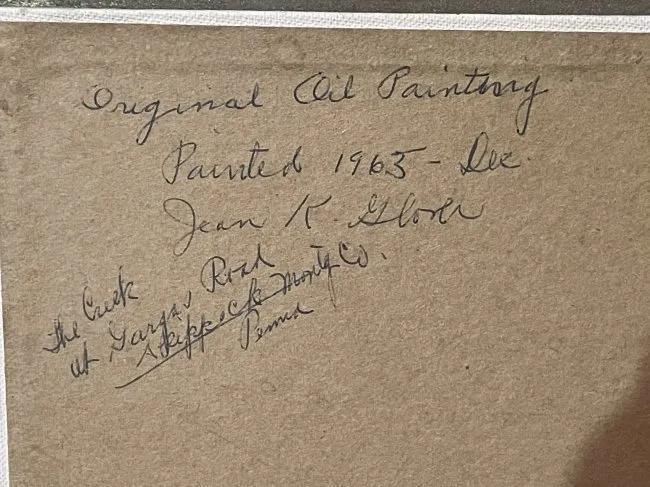 Original Oil Painting
Painted 1965 - Dec.
Jean K. Glover
The Creek
at Garges Road
Skippack Montg Co.
Penna